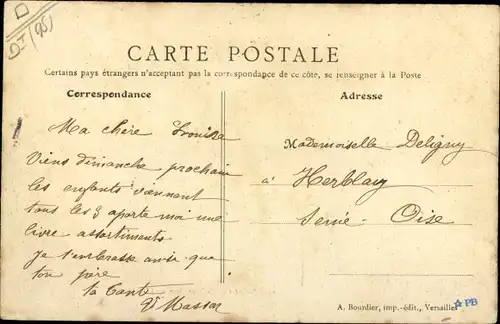 DI (95)
CARTE POSTALE
Certains pays étrangers n'acceptant pas la correspondance de ce côté, se renseigner à la Poste
Correspondance
Ma chère Louise
Viens dimanche prochain
les enfants viennent
tous les 3 aporte moi une
livre assortiments
je t'embrasse ainsi que
ton père
ta tante
V Massar
Adresse
Mademoiselle Deligny
à Herblay
Seine-Oise
A. Bourdier, imp.-édit., Versailles
PB